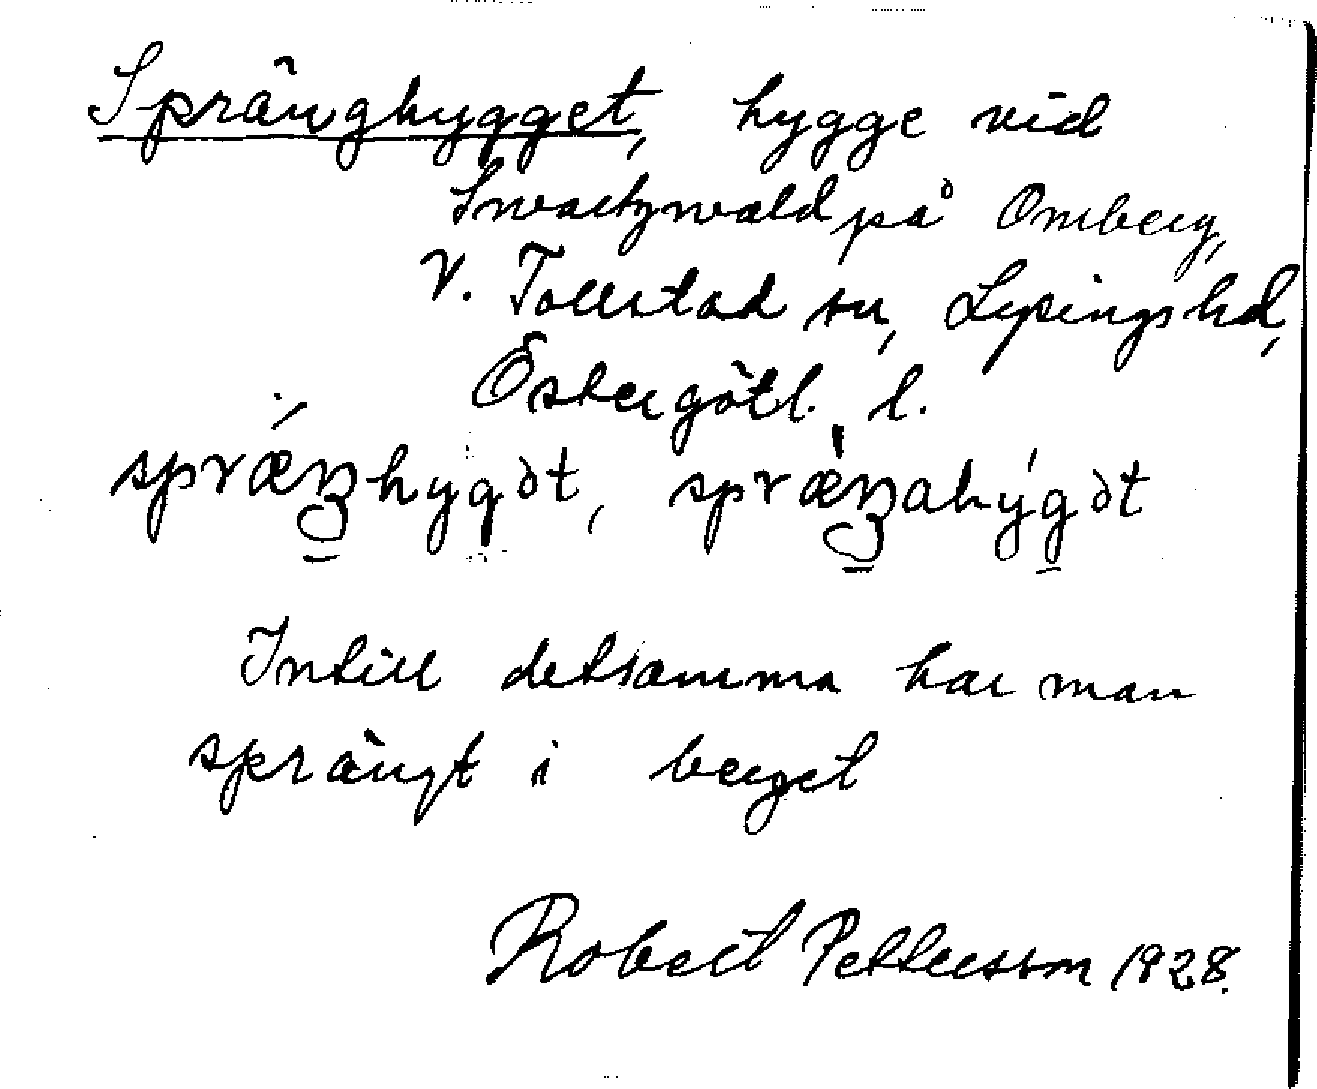 Spränghygget, hygge vid
Swartzwald på Omberg,
V. Tollstad sn, Lysings hd,
Östergötl. l.
sprǽŋhygət, sprǽŋahýgət
Intill detsamma har man
sprängt i berget
Robert Pettersson 1928.